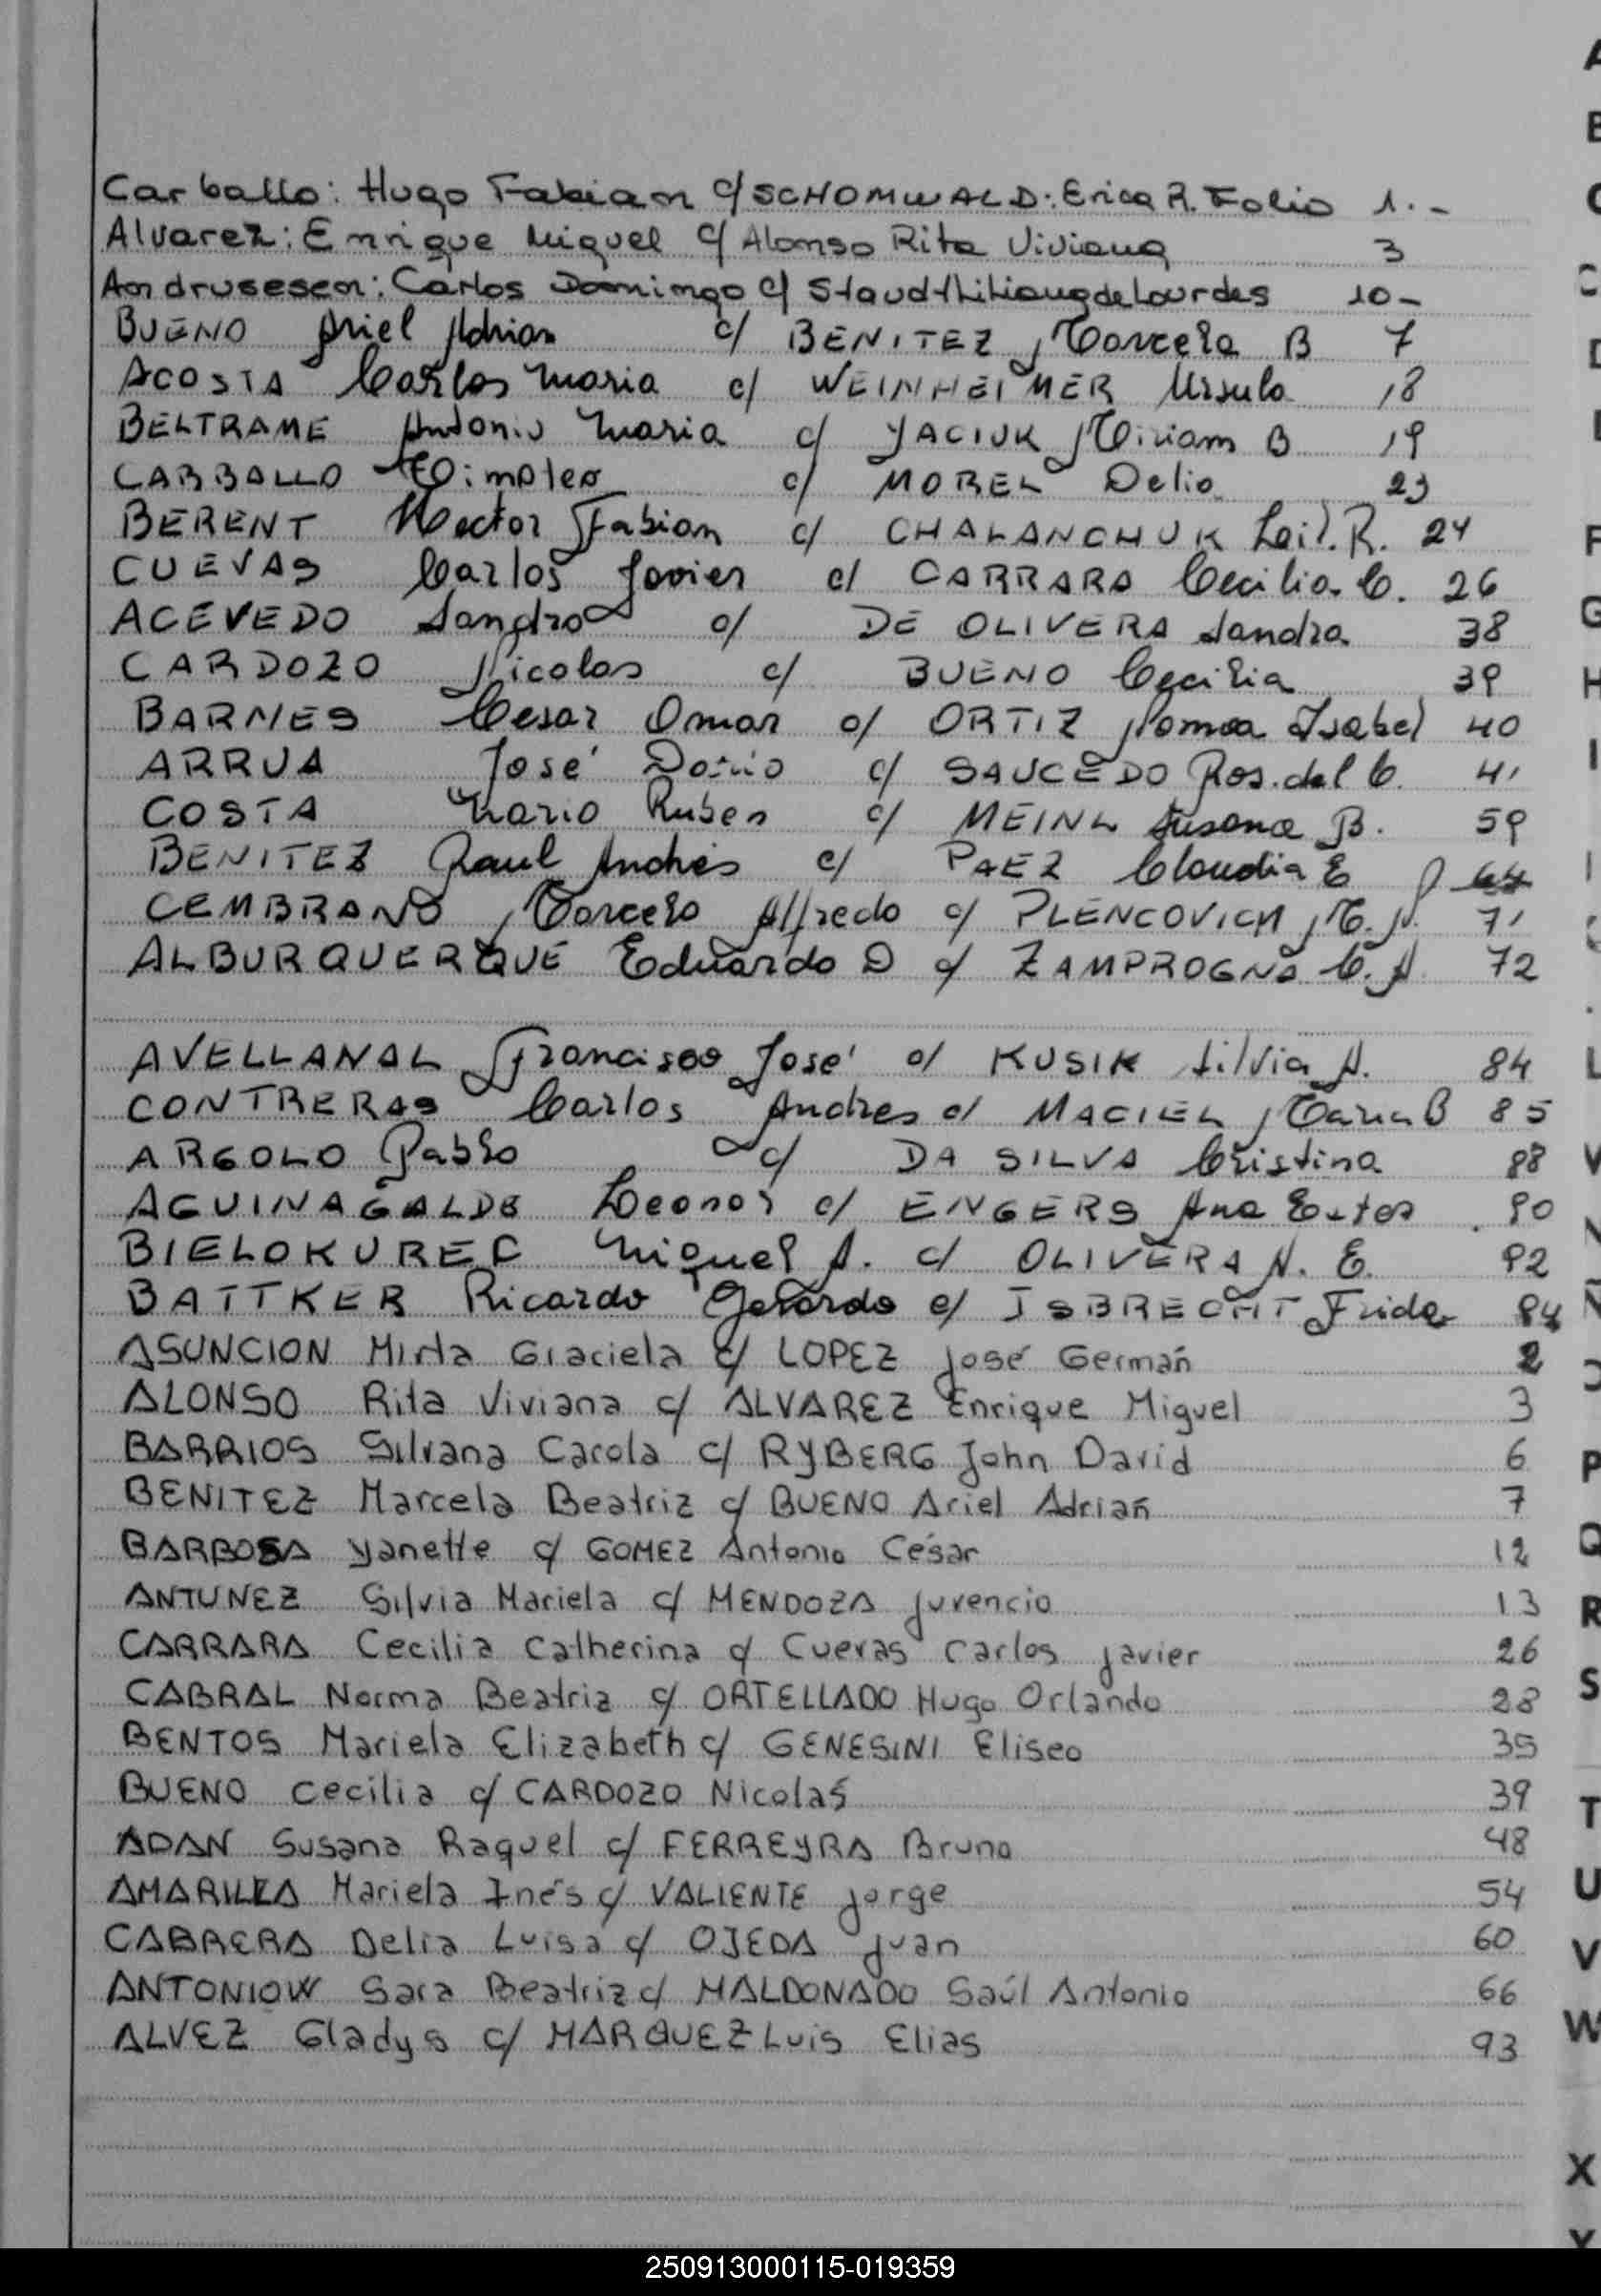 Carballo: Hugo Fabian c/ SCHOMWALD: Erica R. Folio 1.-
Alvarez: Enrique Miguel c/ Alonso Rita Viviana 3
Andrusesen: Carlos Domingo c/ Staudt Liliana de Lourdes 10-
BUENO Ariel Adrian c/ BENITEZ Marcela B 7
ACOSTA Carlos Maria c/ WEINHEIMER Ursula 18
BELTRAME Antonio Maria c/ YACIUK Miriam B 19
CARBALLO Timoteo c/ MOREL Delia 23
BERENT Hector Fabian c/ CHALANCHUK R. 24
CUEVAS Carlos Javier c/ CARRARA Cecilia C. 26
ACEVEDO Sandro c/ DE OLIVERA Sandra 38
CARDOZO Nicolas c/ BUENO Cecilia 39
BARNES Cesar Omar c/ ORTIZ Isabel 40
ARRUA José Dario c/ SAUCEDO Ros. del C. 41
COSTA Mario Ruben c/ MEINL Susana B. 59
BENITEZ Raul Andrés c/ PAEZ Claudia E
CEMBRANO Marcelo Alfredo c/ PLENCOVICH M. N. 71
ALBURQUERQUE Eduardo D c/ ZAMPROGNO C. A 72
AVELLANAL Francisco José c/ KUSIK Silvia A. 84
CONTRERAS Carlos Andres c/ MACIEL Maria B 85
ARGOLO Pablo c/ DA SILVA Cristina 88
AGUINAGALDE Leonor c/ ENGERS Ana Ester 90
BIELOKUREC Miguel A. c/ OLIVERA N. E. 92
BATTKER Ricardo Gerardo c/ ISBRECHT Frida
ASUNCION Mirta Graciela c/ LOPEZ José Germán 2
ALONSO Rita Viviana c/ ALVAREZ Enrique Miguel 3
BARRIOS Silvana Carola c/ RYBERG John David 6
BENITEZ Marcela Beatriz c/ BUENO Ariel Adrián 7
BARBOSA Yanette c/ GOMEZ Antonio César 12
ANTUNEZ Silvia Mariela c/ MENDOZA Juvencio 13
CARRARA Cecilia Catherina c/ Cuevas Carlos Javier 26
CABRAL Norma Beatriz c/ ORTELLADO Hugo Orlando 28
BENTOS Mariela Elizabeth c/ GENESINI Eliseo 35
BUENO Cecilia c/ CARDOZO Nicolás 39
ADAN Susana Raquel c/ FERREYRA Bruno 48
AMARILLA Mariela Inés c/ VALIENTE Jorge 54
CABRERA Delia Luisa c/ OJEDA Juan 60
ANTONIOW Sara Beatriz c/ MALDONADO Saúl Antonio 66
ALVEZ Gladys c/ MARQUEZ Luis Elias 93
250913000115-019359